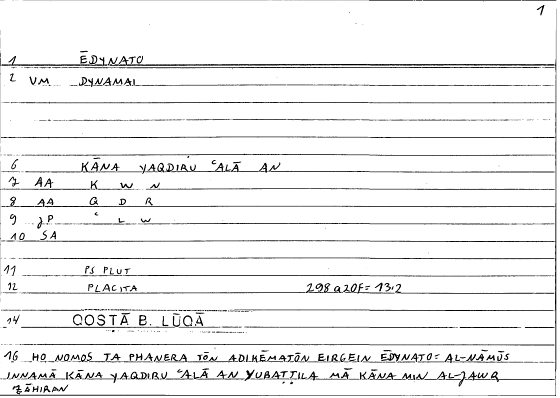 1
1 ĒDYNATO
2 VM DYNAMAI
6 KĀNA YAQDIRU ʿALĀ AN
7 AA K W N
8 AA Q D R
9 JP ʿ L W
10 SA
11 PS PLUT
12 PLACITA 298a20f=13,2
14 QOSTĀ B. LŪQĀ
16 HO NOMOS TA PHANERA TŌN ADIKĒMATŌN EIRGEIN ĒDYNATO= AL-NĀMŪS
INNAMĀ KĀNA YAQDIRU ʿALĀ AN YUBAṬṬILA MĀ KĀNA MIN AL-JAWR
ẒĀHIRAN